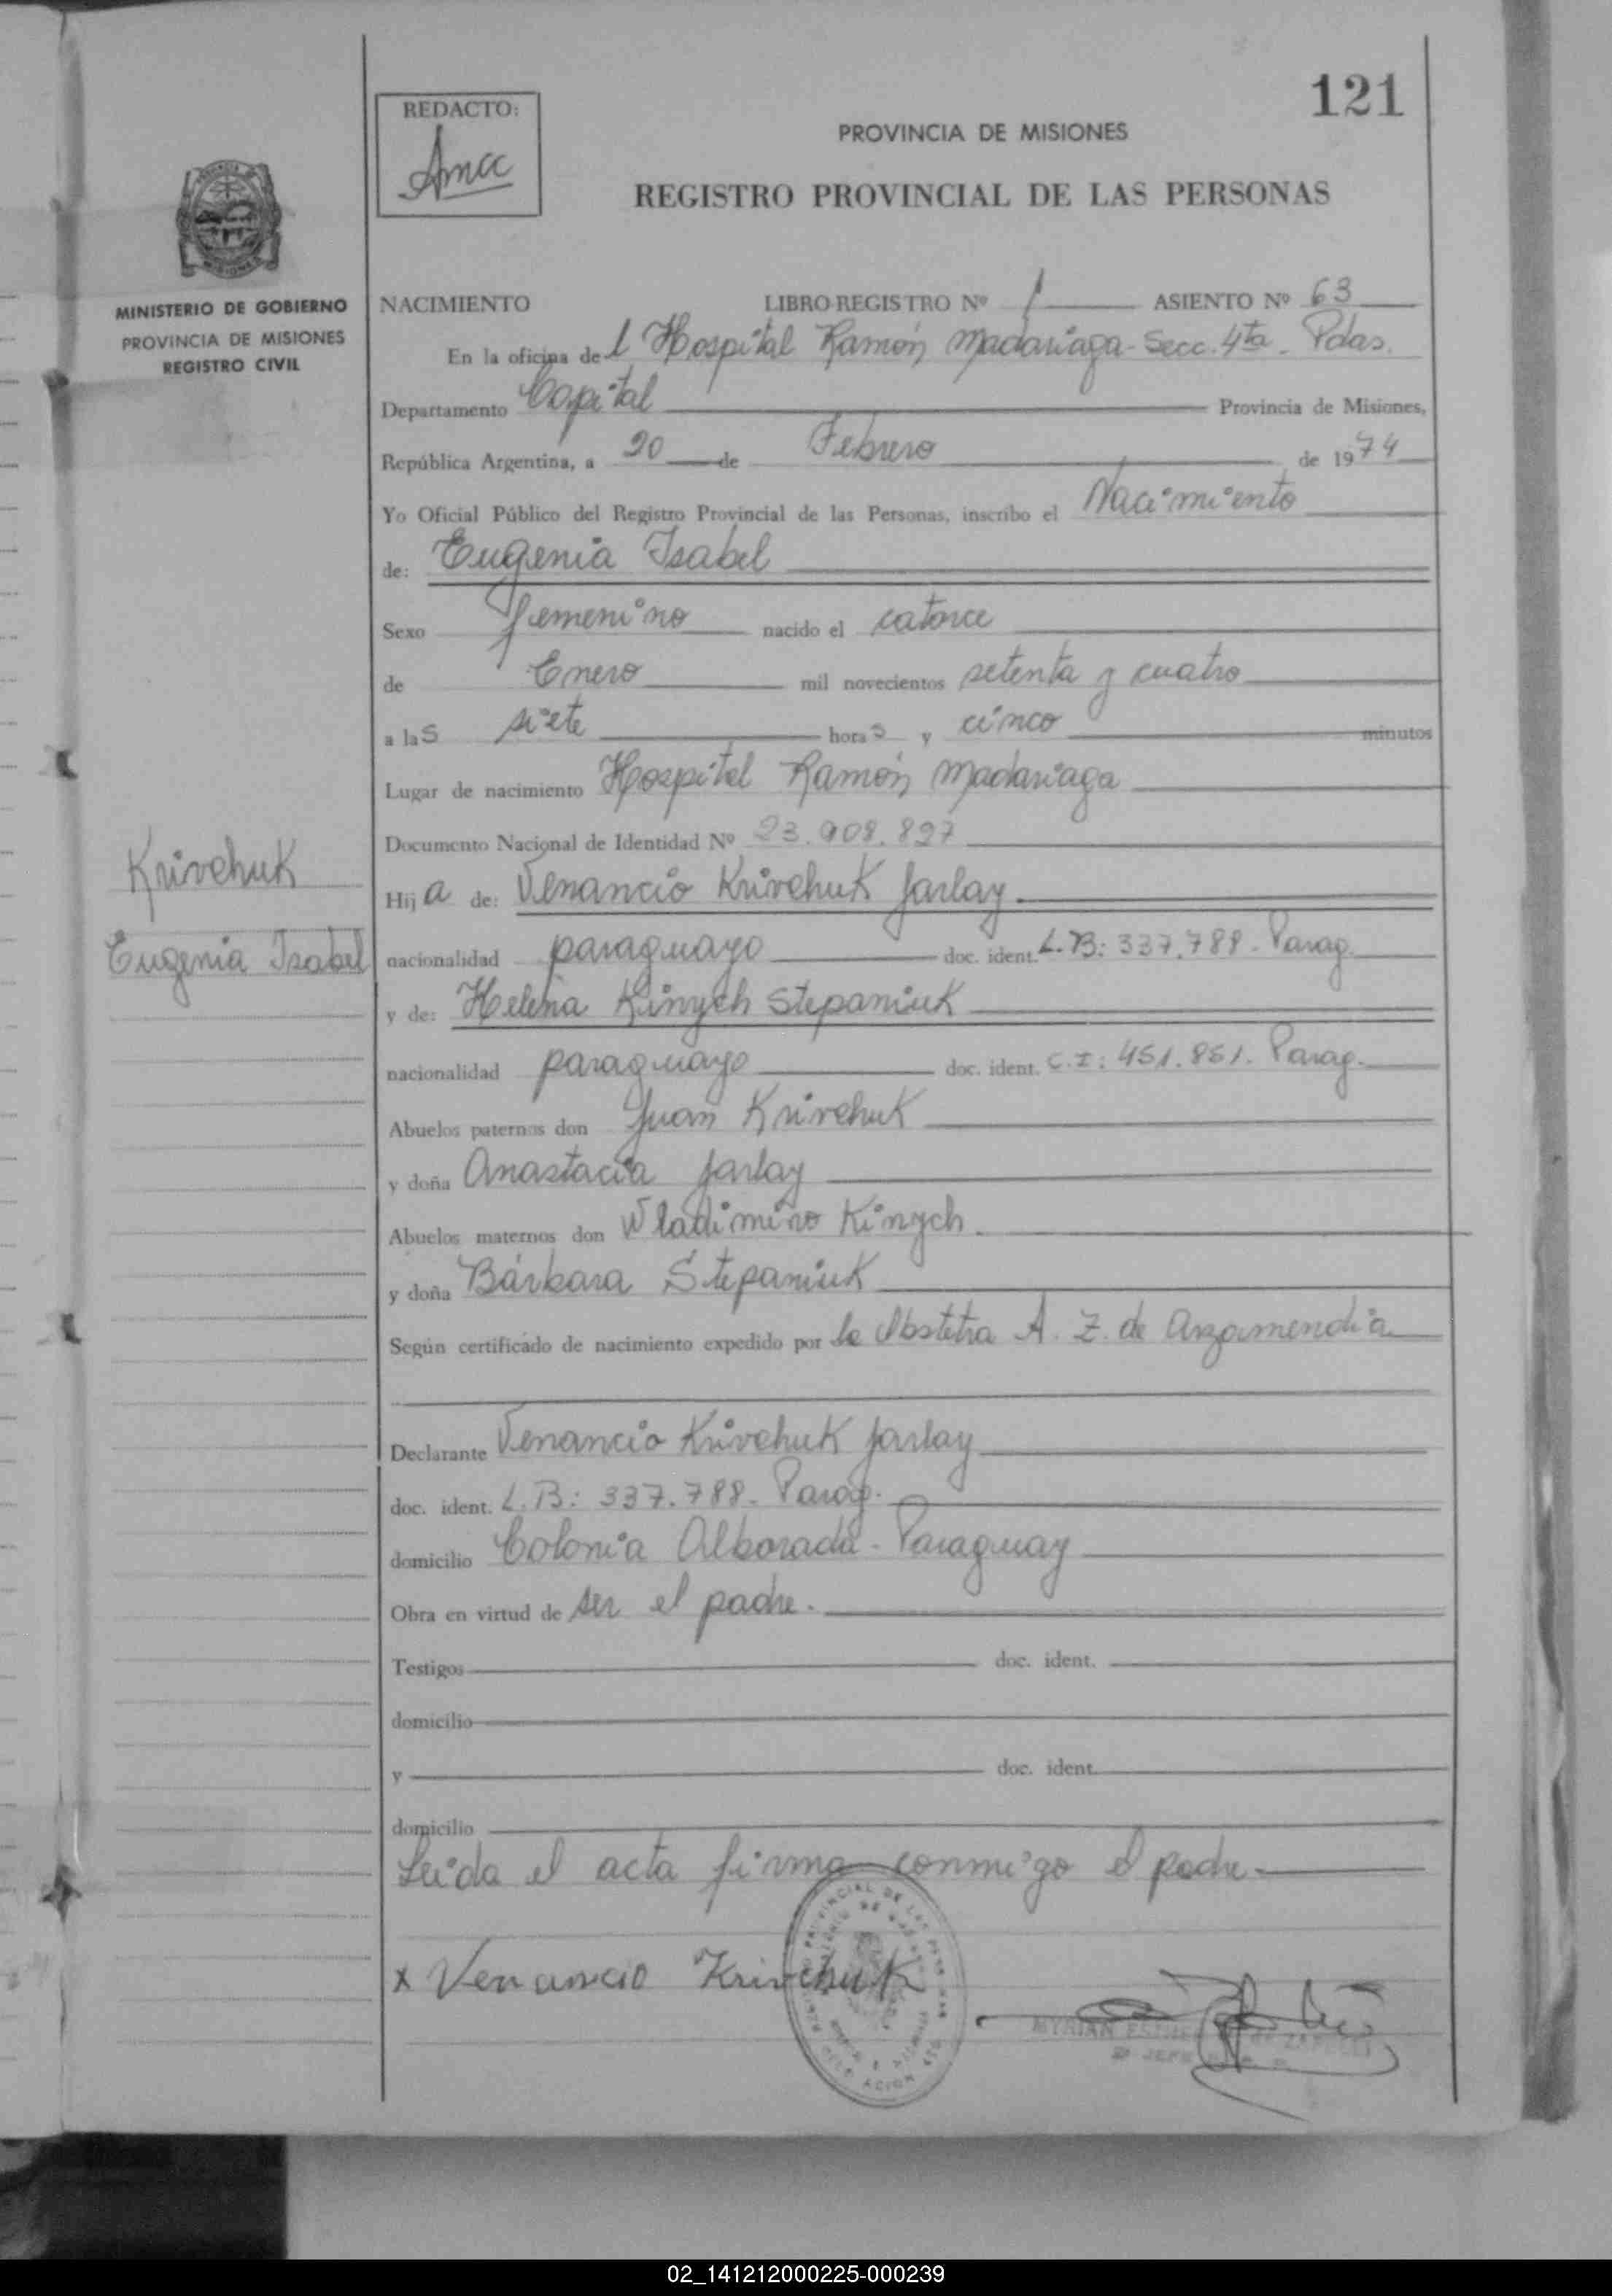 121
REDACTO:
Amcc
PROVINCIA DE MISIONES
REGISTRO PROVINCIAL DE LAS PERSONAS
MISIONES
MINISTERIO DE GOBIERNO
PROVINCIA DE MISIONES
REGISTRO CIVIL
NACIMIENTO LIBRO REGISTRO Nº 1 ASIENTO Nº 63
En la oficina del Hospital Ramón Madariaga - Secc. 4ta - Pdas.
Departamento Capital Provincia de Misiones,
República Argentina, a 20 de Febrero de 1974
Yo Oficial Público del Registro Provincial de las Personas, inscribo el Nacimiento
de: Eugenia Isabel
Sexo femenino nacido el catorce
de Enero mil novecientos setenta y cuatro
a las siete horas y cinco minutos
Lugar de nacimiento Hospital Ramón Madariaga
Documento Nacional de Identidad Nº 23.908.897
Krivchuk
Eugenia Isabel
Hija de: Venancio Krivchuk Jarlay.
nacionalidad paraguayo doc. ident. L.B: 337.788 - Parag.
y de: Helena Kinych Stepaniuk
nacionalidad paraguayo doc. ident. C.I: 451.851. Parag.
Abuelos paternos don Juan Krivchuk
y doña Anastacia Jarlay
Abuelos maternos don Wladimiro Kinych.
y doña Bárbara Stepaniuk
Según certificado de nacimiento expedido por la Obstetra A. Z. de Arzamendia
Declarante Venancio Krivchuk Jarlay
doc. ident. L.B: 337.788 - Parag.
domicilio Colonia Alborada - Paraguay
Obra en virtud de ser el padre.
Testigos doc. ident.
domicilio
y doc. ident.
domicilio
Leida el acta firma conmigo el padre
x Venancio Krivchuk
MYRIAN
02_141212000225-000239